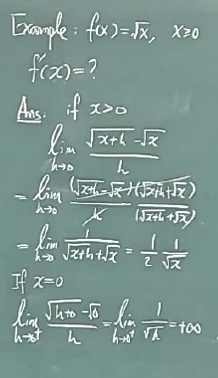 Example: f(x)=√x, x≥0
f'(x)=?
Ans. if x>0
lim h→0 (√(x+h) - √x)/h
= lim h→0 (√(x+h) - √x)(√(x+h) + √x)/(h (√(x+h) + √x))
= lim h→0 1/(√(x+h) + √x) = 1/2 1/√x
If x=0
lim h→0⁺ (√(h+0) - √0)/h = lim h→0⁺ 1/√h = +∞